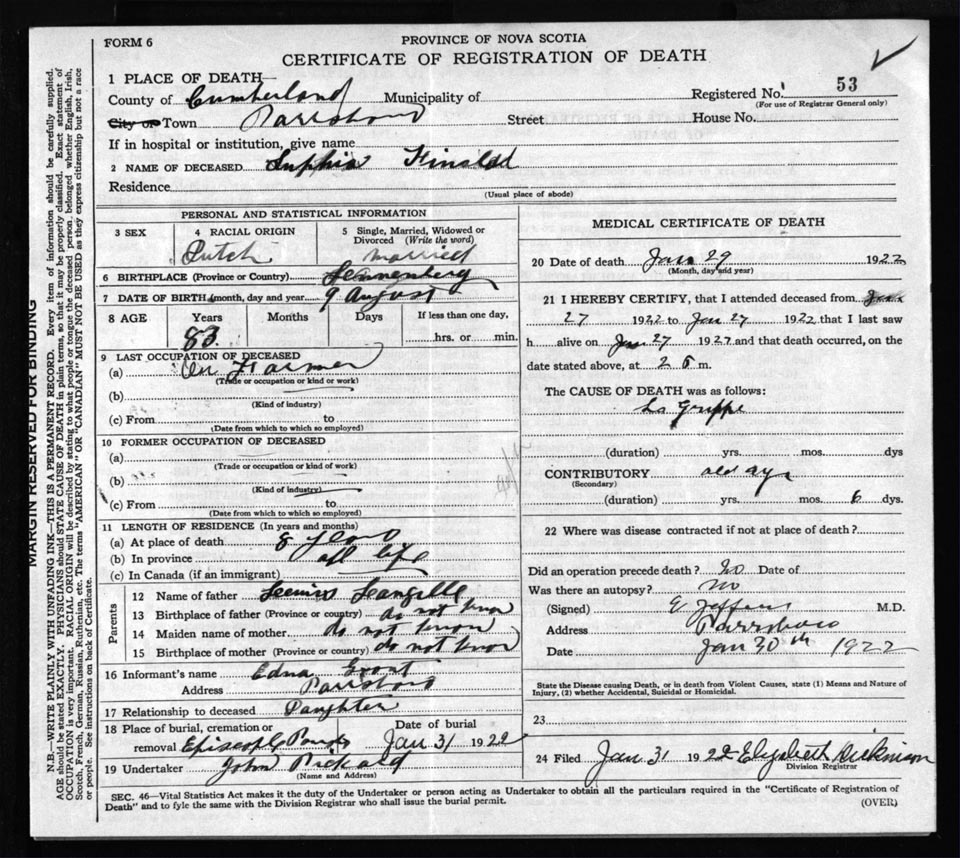 FORM 6
PROVINCE OF NOVA SCOTIA
CERTIFICATE OF REGISTRATION OF DEATH
1 PLACE OF DEATH—
County of Cumberland Municipality of
Registered No. 53
(For use of Registrar General only)
City or Town Parrsboro Street House No.
If in hospital or institution, give name
2 NAME OF DECEASED Sophia
Residence
(Usual place of abode)
PERSONAL AND STATISTICAL INFORMATION
3 SEX
4 RACIAL ORIGIN
Dutch
5 Single, Married, Widowed or Divorced (Write the word)
married
6 BIRTHPLACE (Province or Country) Lunenberg
7 DATE OF BIRTH (month, day and year) 9 August
8 AGE Years Months Days If less than one day,
83 hrs. or min.
9 LAST OCCUPATION OF DECEASED
(a) Farmer
(Trade or occupation or kind or work)
(b)
(Kind of industry)
(c) From to
(Date from which to which so employed)
10 FORMER OCCUPATION OF DECEASED
(a)
(Trade or occupation or kind of work)
(b)
(Kind of industry)
(c) From to
(Date from which to which so employed)
11 LENGTH OF RESIDENCE (In years and months)
(a) At place of death 8 years
(b) In province all life
(c) In Canada (if an immigrant)
Parents
12 Name of father Langille
13 Birthplace of father (Province or country) do not know
14 Maiden name of mother do not know
15 Birthplace of mother (Province or country) do not know
16 Informant's name Edna Grant
Address Parrsboro
17 Relationship to deceased Daughter
18 Place of burial, cremation or removal Date of burial
Jan 31 1922
19 Undertaker John Rickard
(Name and Address)
MEDICAL CERTIFICATE OF DEATH
20 Date of death Jan 29 1922
(Month, day and year)
21 I HEREBY CERTIFY, that I attended deceased from Jan
27 1922 to Jan 27 1922 that I last saw
h alive on Jan 27 1922 and that death occurred, on the
date stated above, at 2 m.
The CAUSE OF DEATH was as follows:
La Grippe
(duration) yrs. mos. dys
CONTRIBUTORY old age
(Secondary)
(duration) yrs. mos. 6 dys.
22 Where was disease contracted if not at place of death?
Did an operation precede death? No Date of
Was there an autopsy? no
(Signed) M.D.
Address Parrsboro
Date Jan 30th 1922
State the Disease causing Death, or in death from Violent Causes, state (1) Means and Nature of
Injury, (2) whether Accidental, Suicidal or Homicidal.
23
24 Filed Jan 31 1922 Elizabeth Dickinson
Division Registrar
SEC. 46—Vital Statistics Act makes it the duty of the Undertaker or person acting as Undertaker to obtain all the particulars required in the "Certificate of Registration of
Death" and to fyle the same with the Division Registrar who shall issue the burial permit.
(OVER)
MARGIN RESERVED FOR BINDING
N.B.—WRITE PLAINLY WITH UNFADING INK—THIS IS A PERMANENT RECORD. Every item of information should be carefully supplied.
AGE should be stated EXACTLY. PHYSICIANS should STATE CAUSE OF DEATH in plain terms, so that it may be properly classified. Exact statement of
OCCUPATION is very important. RACIAL ORIGIN will be described by stating to what people or tongue the deceased person belonged whether English, Irish,
Scotch, French, German, Russian, Ruthenian, etc. The terms "AMERICAN" or "CANADIAN" MUST NOT BE USED as they express citizenship but not a race
or people. See instructions on back of Certificate.